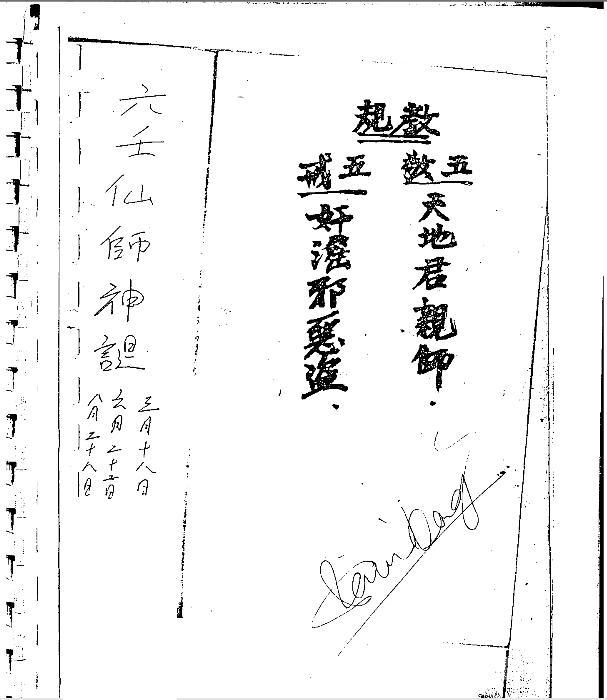 教規
五敬
天地君親師.
五戒
奸淫邪惡盜.
六壬仙師神誕
三月十八日
六月二十日
八月二十八日